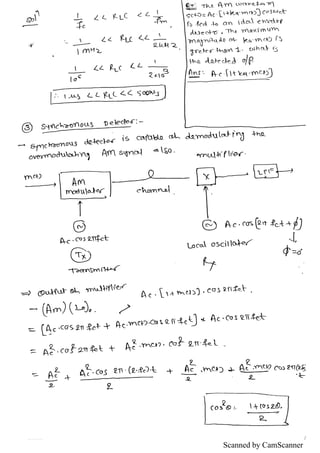 soln
1/fc << RLC << 1/fm
1/1MHz << RLC << 1/2KHz
1/10⁶ << RLC << 1/2×10³
∴ 1 μs << RLC << 500 μs
Ex: The AM waveform
s(t) = Ac [1+ka·m(t)] cos2πfct
is fed to an ideal envelope
detector. The maximum
magnitude of ka·m(t) is
greater than 1. what is
the detected o/p
Ans: Ac|1+ka·m(t)|
③ Synchronous Detector:-
→ synchronous detector is capable of demodulating the
overmodulating AM signal also.
multiplier
m(t)
AM
modulator
channel
X
LPF
Ac·cos2πfct
Ac·cos[2πfct+φ]
Local oscillator
φ=0
Tx
Rx
Transmitter
⇒ output of multiplier
Ac·[1+m(t)]·cos2πfct.
– (AM)(L.O).
= [Ac·cos2πfct + Ac·m(t)·cos2πfct] × Ac·cos2πfct
= Ac²·cos²2πfct + Ac²·m(t)·cos²2πfct.
= Ac²/2 + Ac²·cos2π(2fc)t/2 + Ac²·m(t)/2 + Ac²·m(t)cos2π(2fc)t/2
cos²θ = 1+cos2θ/2
Scanned by CamScanner